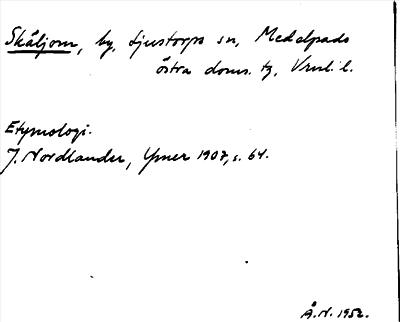 Skäljom, by, Ljustorps sn, Medelpads
östra doms. tg, Vnrl. l.
Etymologi.
J. Nordlander, Ymer 1907, s. 64.
Å.N. 1952.